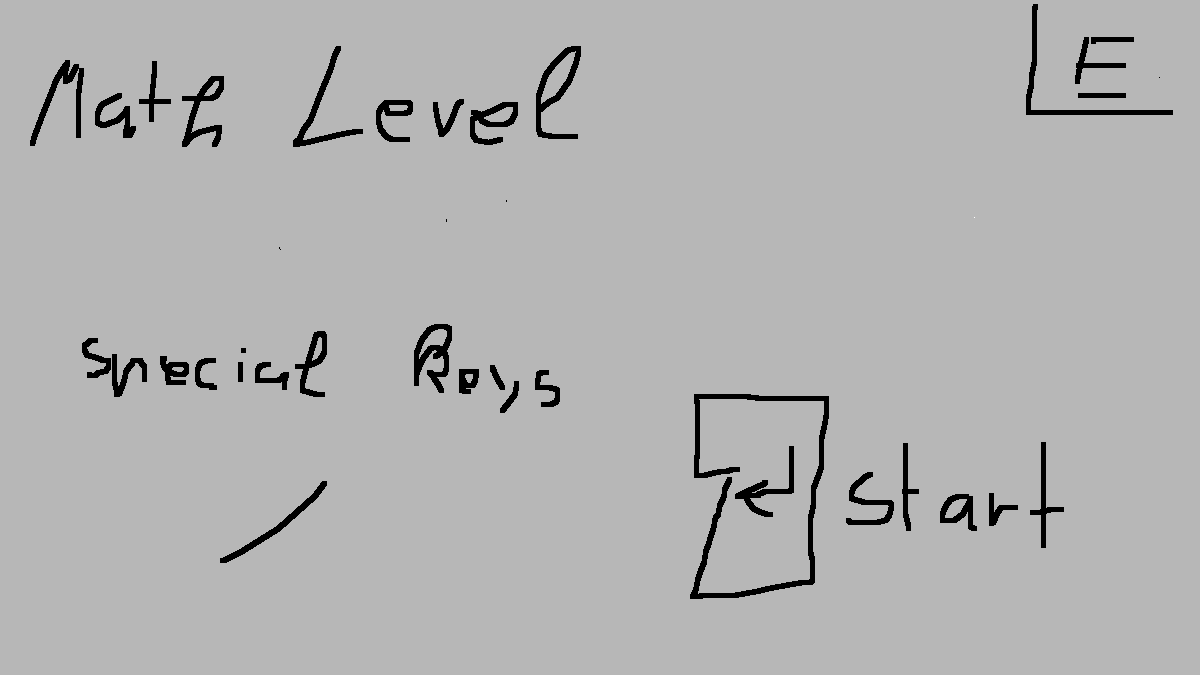 Math Level
E
Special Keys
Start